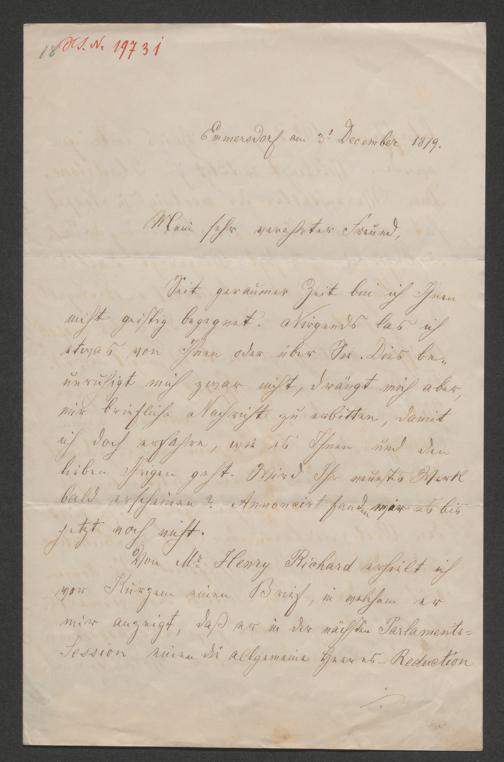 18 HS. N. 19731
Emmersdorf am 3t December 1879.
Mein sehr verehrter Freund,
Seit geraumer Zeit bin ich Ihnen
nicht geistig begegnet. Nirgends las ich
etwas von Ihnen oder über Sie. Dies be„
unruhigt mich zwar nicht, drängt mich aber,
mir briefliche Nachricht zu erbitten, damit
ich doch erfahre, wie es Ihnen und den
lieben Ihrigen geht. Wird Ihr neuestes Werk
bald erscheinen? Annoncirt fand es bis
jetzt noch nicht.
Von Mr Henry Richard erhielt ich
vor Kurzem einen Brief, in welchem er
mir anzeigt, daß er in der nächsten Parlaments=
Session einen die allgemeine Heeres-Reduction